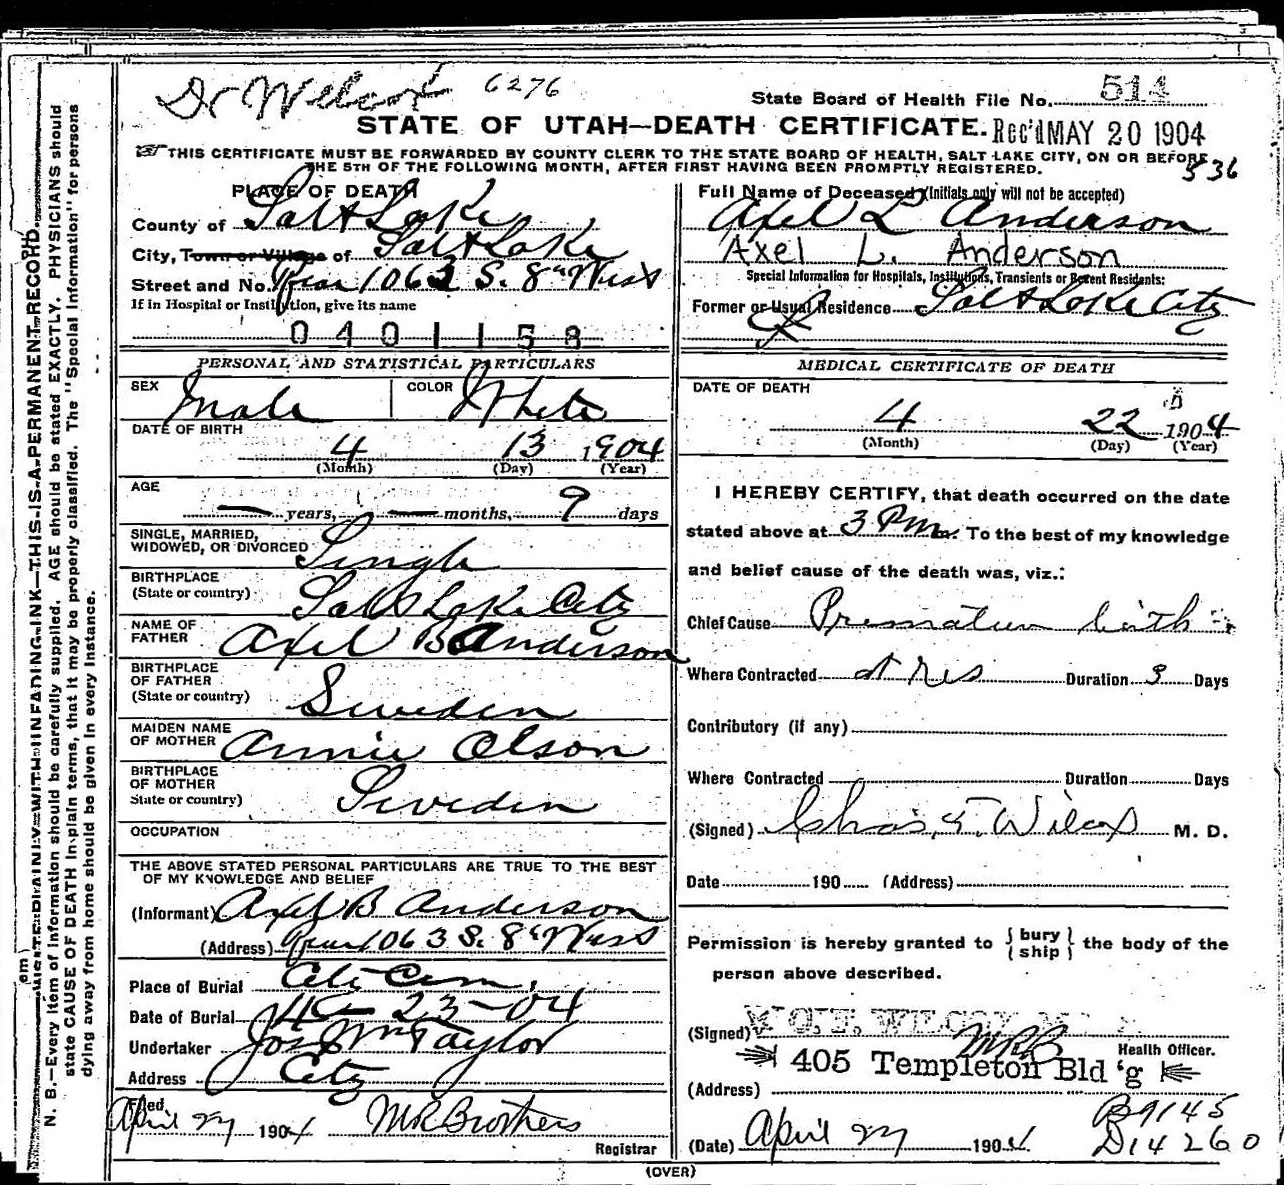 Dr Wilcox 6276
State Board of Health File No. 514
STATE OF UTAH—DEATH CERTIFICATE. Rec'd MAY 20 1904
THIS CERTIFICATE MUST BE FORWARDED BY COUNTY CLERK TO THE STATE BOARD OF HEALTH, SALT LAKE CITY, ON OR BEFORE
THE 5TH OF THE FOLLOWING MONTH, AFTER FIRST HAVING BEEN PROMPTLY REGISTERED.
536
PLACE OF DEATH
County of Salt Lake
City, Town or Village of Salt Lake
Street and No. Rear 1063 S. 8th West
If in Hospital or Institution, give its name
0401158
Full Name of Deceased (Initials only will not be accepted)
Axel L Anderson
Axel L. Anderson
Special Information for Hospitals, Institutions, Transients or Recent Residents:
Former or Usual Residence Salt Lake City
PERSONAL AND STATISTICAL PARTICULARS
SEX Male COLOR White
DATE OF BIRTH
4 13 1904
(Month) (Day) (Year)
AGE
— years, — months, 9 days
SINGLE, MARRIED,
WIDOWED, OR DIVORCED Single
BIRTHPLACE
(State or country) Salt Lake City
NAME OF
FATHER Axel B Anderson
BIRTHPLACE
OF FATHER
(State or country) Sweden
MAIDEN NAME
OF MOTHER Annie Olson
BIRTHPLACE
OF MOTHER
State or country) Sweden
OCCUPATION
THE ABOVE STATED PERSONAL PARTICULARS ARE TRUE TO THE BEST
OF MY KNOWLEDGE AND BELIEF
(Informant) Axel B Anderson
(Address) Rear 1063 S. 8th West
Place of Burial City Cem.
Date of Burial 4-23-04
Undertaker Jos Wm Taylor
Address City
Filed
April 27 1904 M R Brothers
Registrar
MEDICAL CERTIFICATE OF DEATH
DATE OF DEATH
4 22 1904
(Month) (Day) (Year)
I HEREBY CERTIFY, that death occurred on the date
stated above at 3 PM m. To the best of my knowledge
and belief cause of the death was, viz.:
Chief Cause Premature birth
Where Contracted at res Duration 9 Days
Contributory (if any)
Where Contracted Duration Days
(Signed) Chas. F. Wilcox M. D.
Date 190 (Address)
Permission is hereby granted to {bury ship} the body of the
person above described.
(Signed) WILCOX
MRB
Health Officer.
405 Templeton Bld'g
(Address)
B9145
(Date) April 27 1904. D14260
(OVER)
N. B.—Every item of information should be carefully supplied. AGE should be stated EXACTLY. PHYSICIANS should
state CAUSE OF DEATH in plain terms, that it may be properly classified. The "Special Information" for persons
dying away from home should be given in every instance.
WRITE PLAINLY WITH UNFADING INK—THIS IS A PERMANENT RECORD.